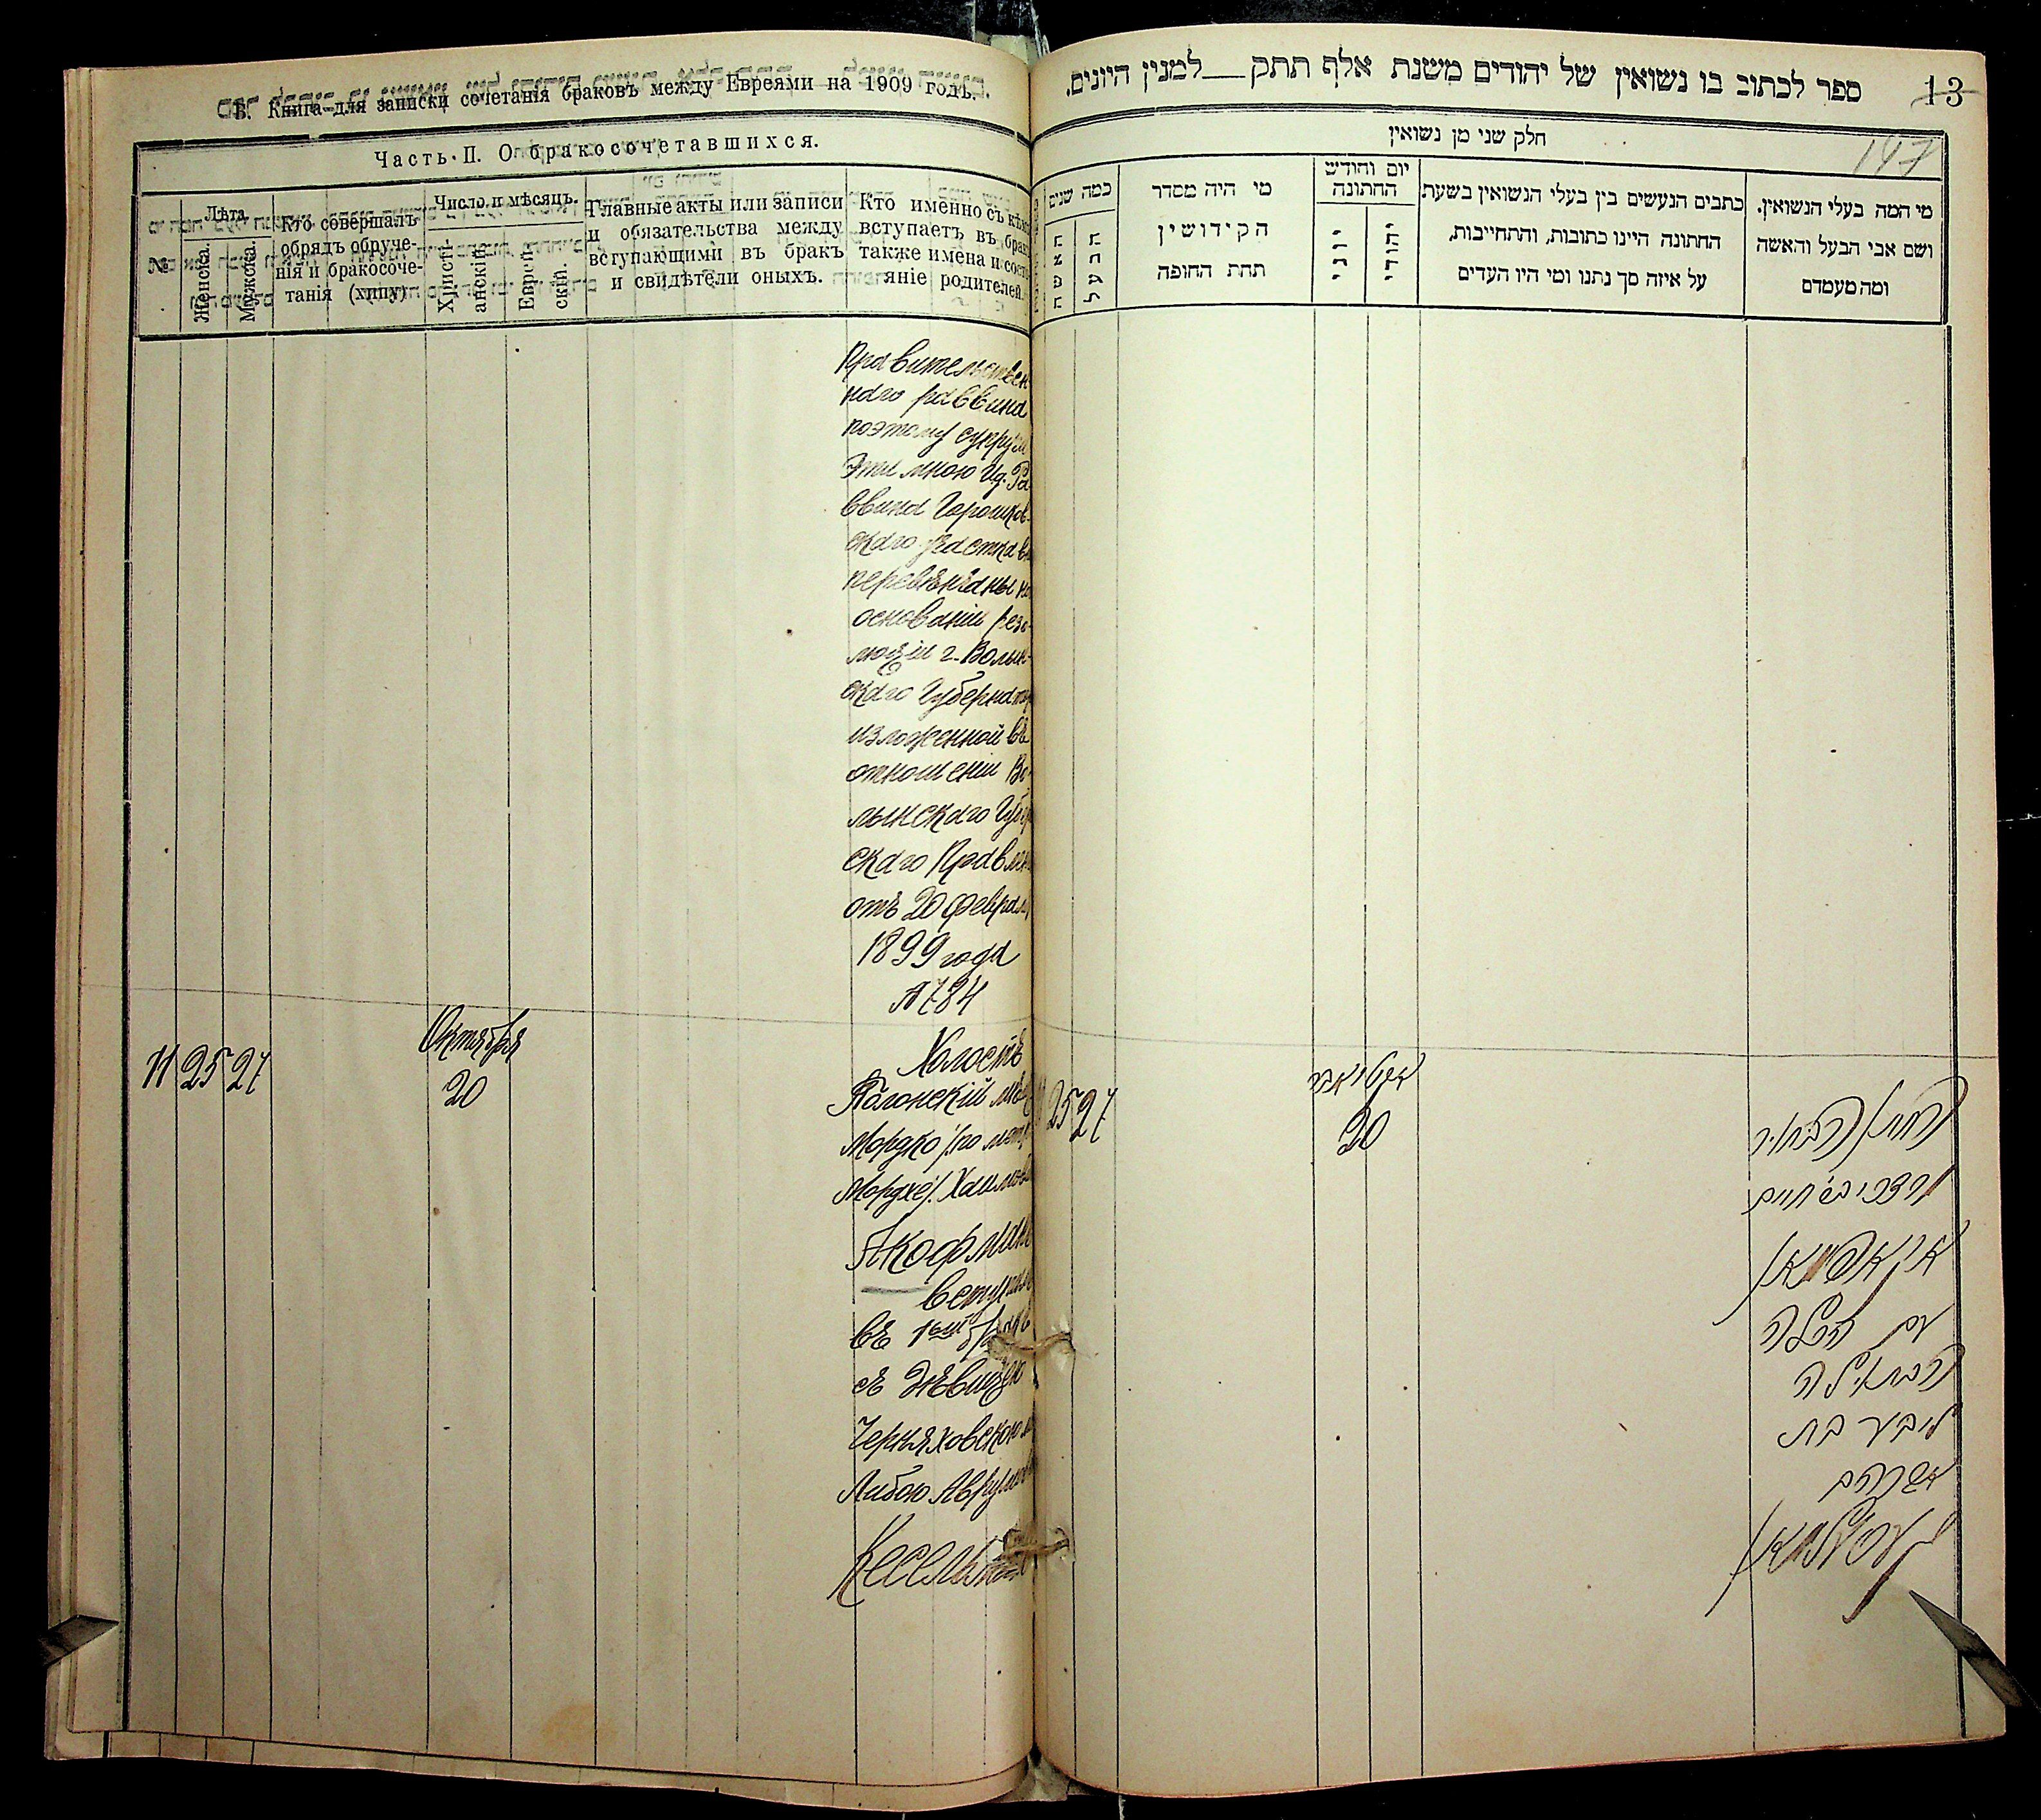 Б. Книга для записки сочетанія браковъ между Евреями на 1909 годъ.
Часть II. О бракосочетавшихся.
№
Лѣта
Женска.
Мужска.
Кто совершалъ
обрядъ обруче-
нія и бракосоче-
танія (хипу)
Число и мѣсяцъ.
Христі-
анскій.
Еврей-
скій.
Главные акты или записи
и обязательства между
вступающими въ бракъ
и свидѣтели оныхъ.
Кто именно съ кѣмъ
вступаетъ въ бракъ
также имена и сост
яніе родителей.
Правительствен
наго раввина
поэтому супруги
Эти мною И.д. Ра
ввина Горошков-
скаго участка
перевѣнчаны на
основаніи резо-
люціи г. Волын-
скаго Губернатор
изложенной въ
отношеніи Во-
лынскаго Губерн
скаго Правлен
отъ 20 феврал
1899 года
№ 784
11 25 27
Октября
20
Холостъ
мѣщ
Мордко /по метр
Мордхе/ Хаимов
Акофман
вступил
въ 1ый бракъ
съ дѣвицею
Черняховскою м
Либою Аврумов
Кесельман
13
147
ספר לכתוב בו נשואין של יהודים משנת אלף תתק__ למנין היונים.
חלק שני מן נשואין
מי המה בעלי הנשואין.
ושם אבי הבעל והאשה
ומה מעמדם
כתבים הנעשים בין בעלי הנשואין בשעת
החתונה היינו כתובות, והתחייבות,
על איזה סך נתנו ומי היו העדים
יום וחודש
החתונה
יהודי
יוני
מי היה מסדר
הקידושין
תחת החופה
כמה שנים
הבעל
האשה
החתן הבחור
מרדכי ב״ר חיים
אקאפמאן
עם הכלה
הבתולה
ליבע בת
אברהם
קעסילמאן
אקטיאבר
20
25 27